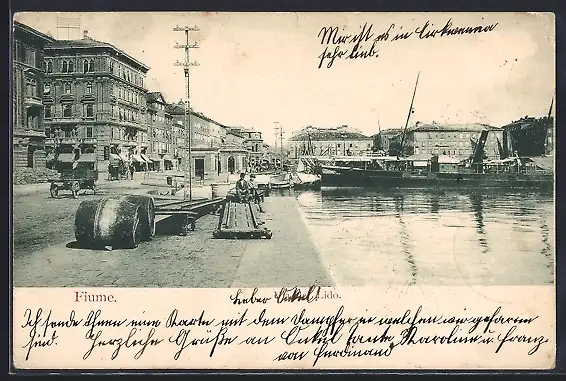 Mir ist es in Cirkvenna
sehr lieb.
Fiume.
Lido.
lieber Onkel!
Ich sende Ihnen eine Karte mit dem Dampfer in welchen wir gefaren
sind. Herzliche Grüße an Onkel Tante Karoline u Franz,
von Ferdinand